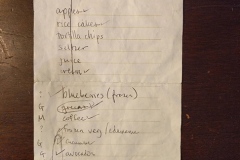 apples
rice cakes
tortilla chips
seltzer
juice
: blueberries (frozen)
G
M coffee
frozen veg / edamame
G
G avocados